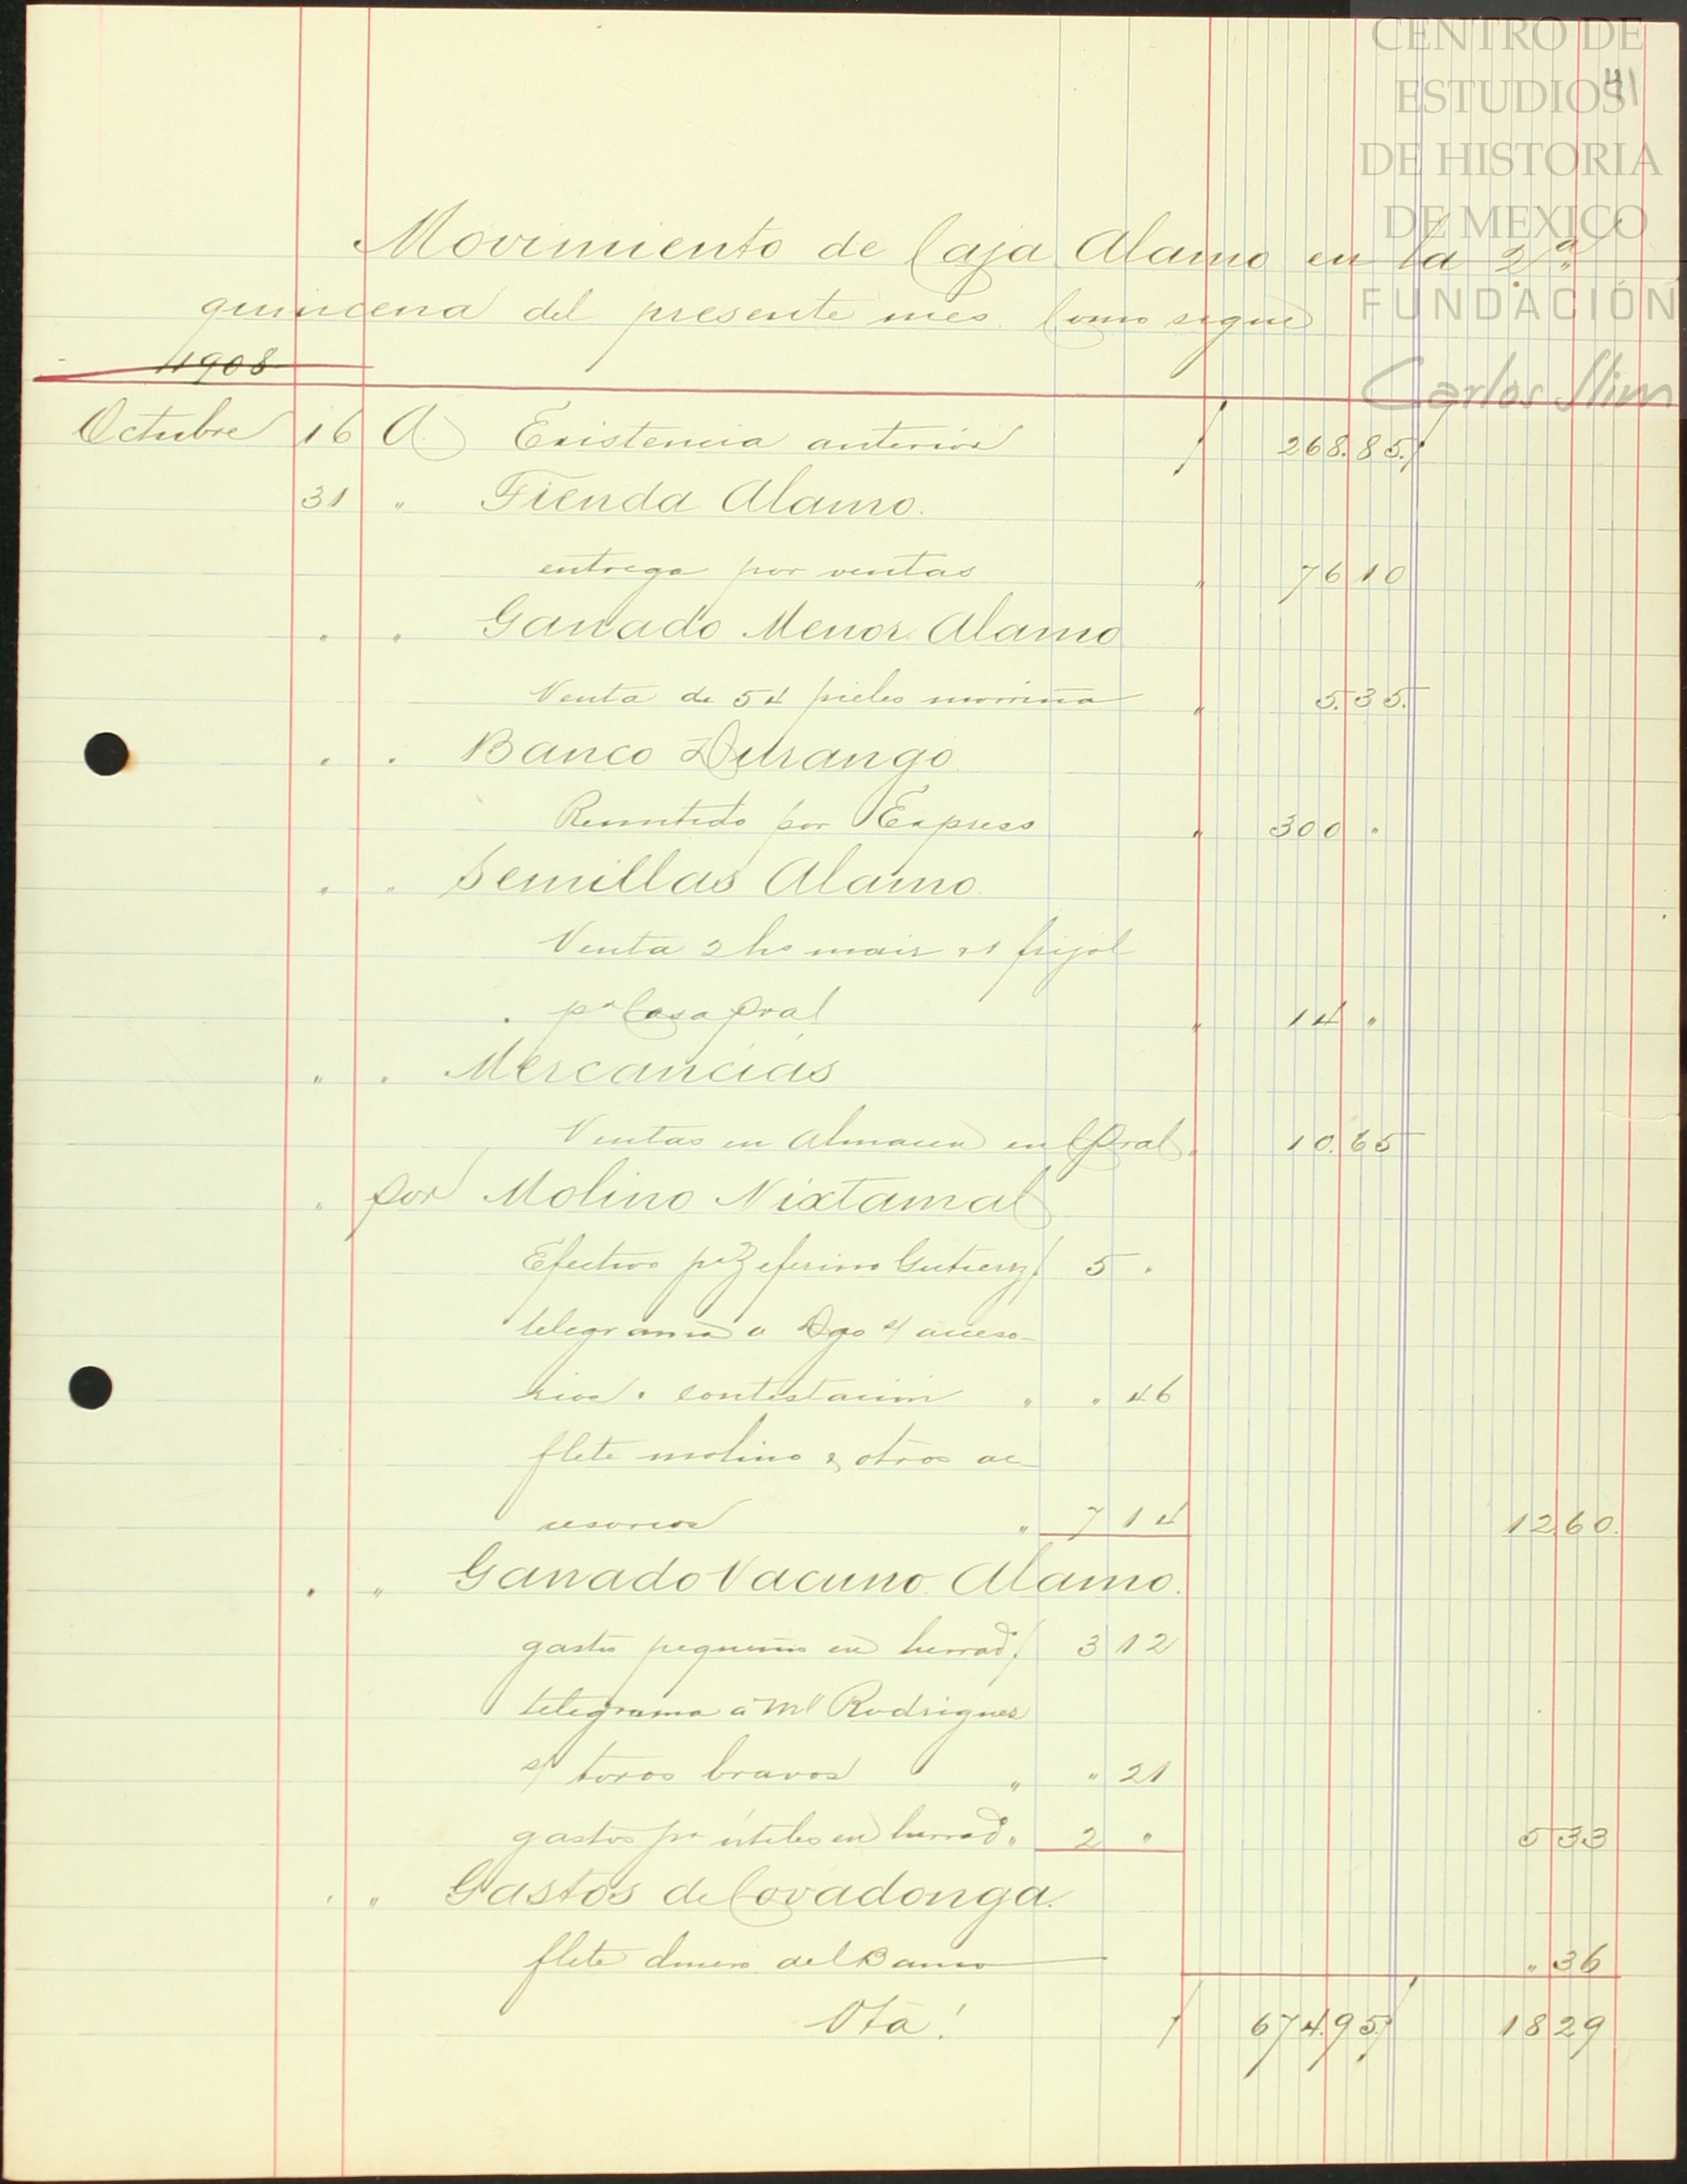 CENTRO DE
ESTUDIOS
41
DE HISTORIA
DE MEXICO
FUNDACIÓN
Carlos Slim
Movimiento de Caja Alamo en la 2ª
quincena del presente mes. Como sigue
1908
Octubre 16 A Existencia anterior $ 268.85.
31 " Tienda Alamo.
entrega por ventas " 76 10
" " Ganado Menor Alamo
Venta de 54 pieles morriña " 5.35.
" " Banco Durango
Remitido por Express " 300 "
" " Semillas Alamo
Venta 2 hs mais y 1 frijol
" pª Casa Pral " 14 "
" " Mercancias
Ventas en Almacen en C Pral " 10.65
" por Molino Nixtamal
Efectivo pª Zeferino Gutierrz $ 5 "
telegrama a Dgo s/ acceso-
rios " contestacion " " 46
flete molino y otros ac-
cesorios " 7 14 12.60.
" " Ganado Vacuno Alamo.
gastos pequeños en herrad. $ 3 12
telegrama á Ml Rodriguez
s/ toros bravos " " 21
gastos pª útiles en herrad. " 2 " 5 33
" " Gastos de Covadonga.
flete dinero del Banco " 36
Vta! $ 674.95. 18 29